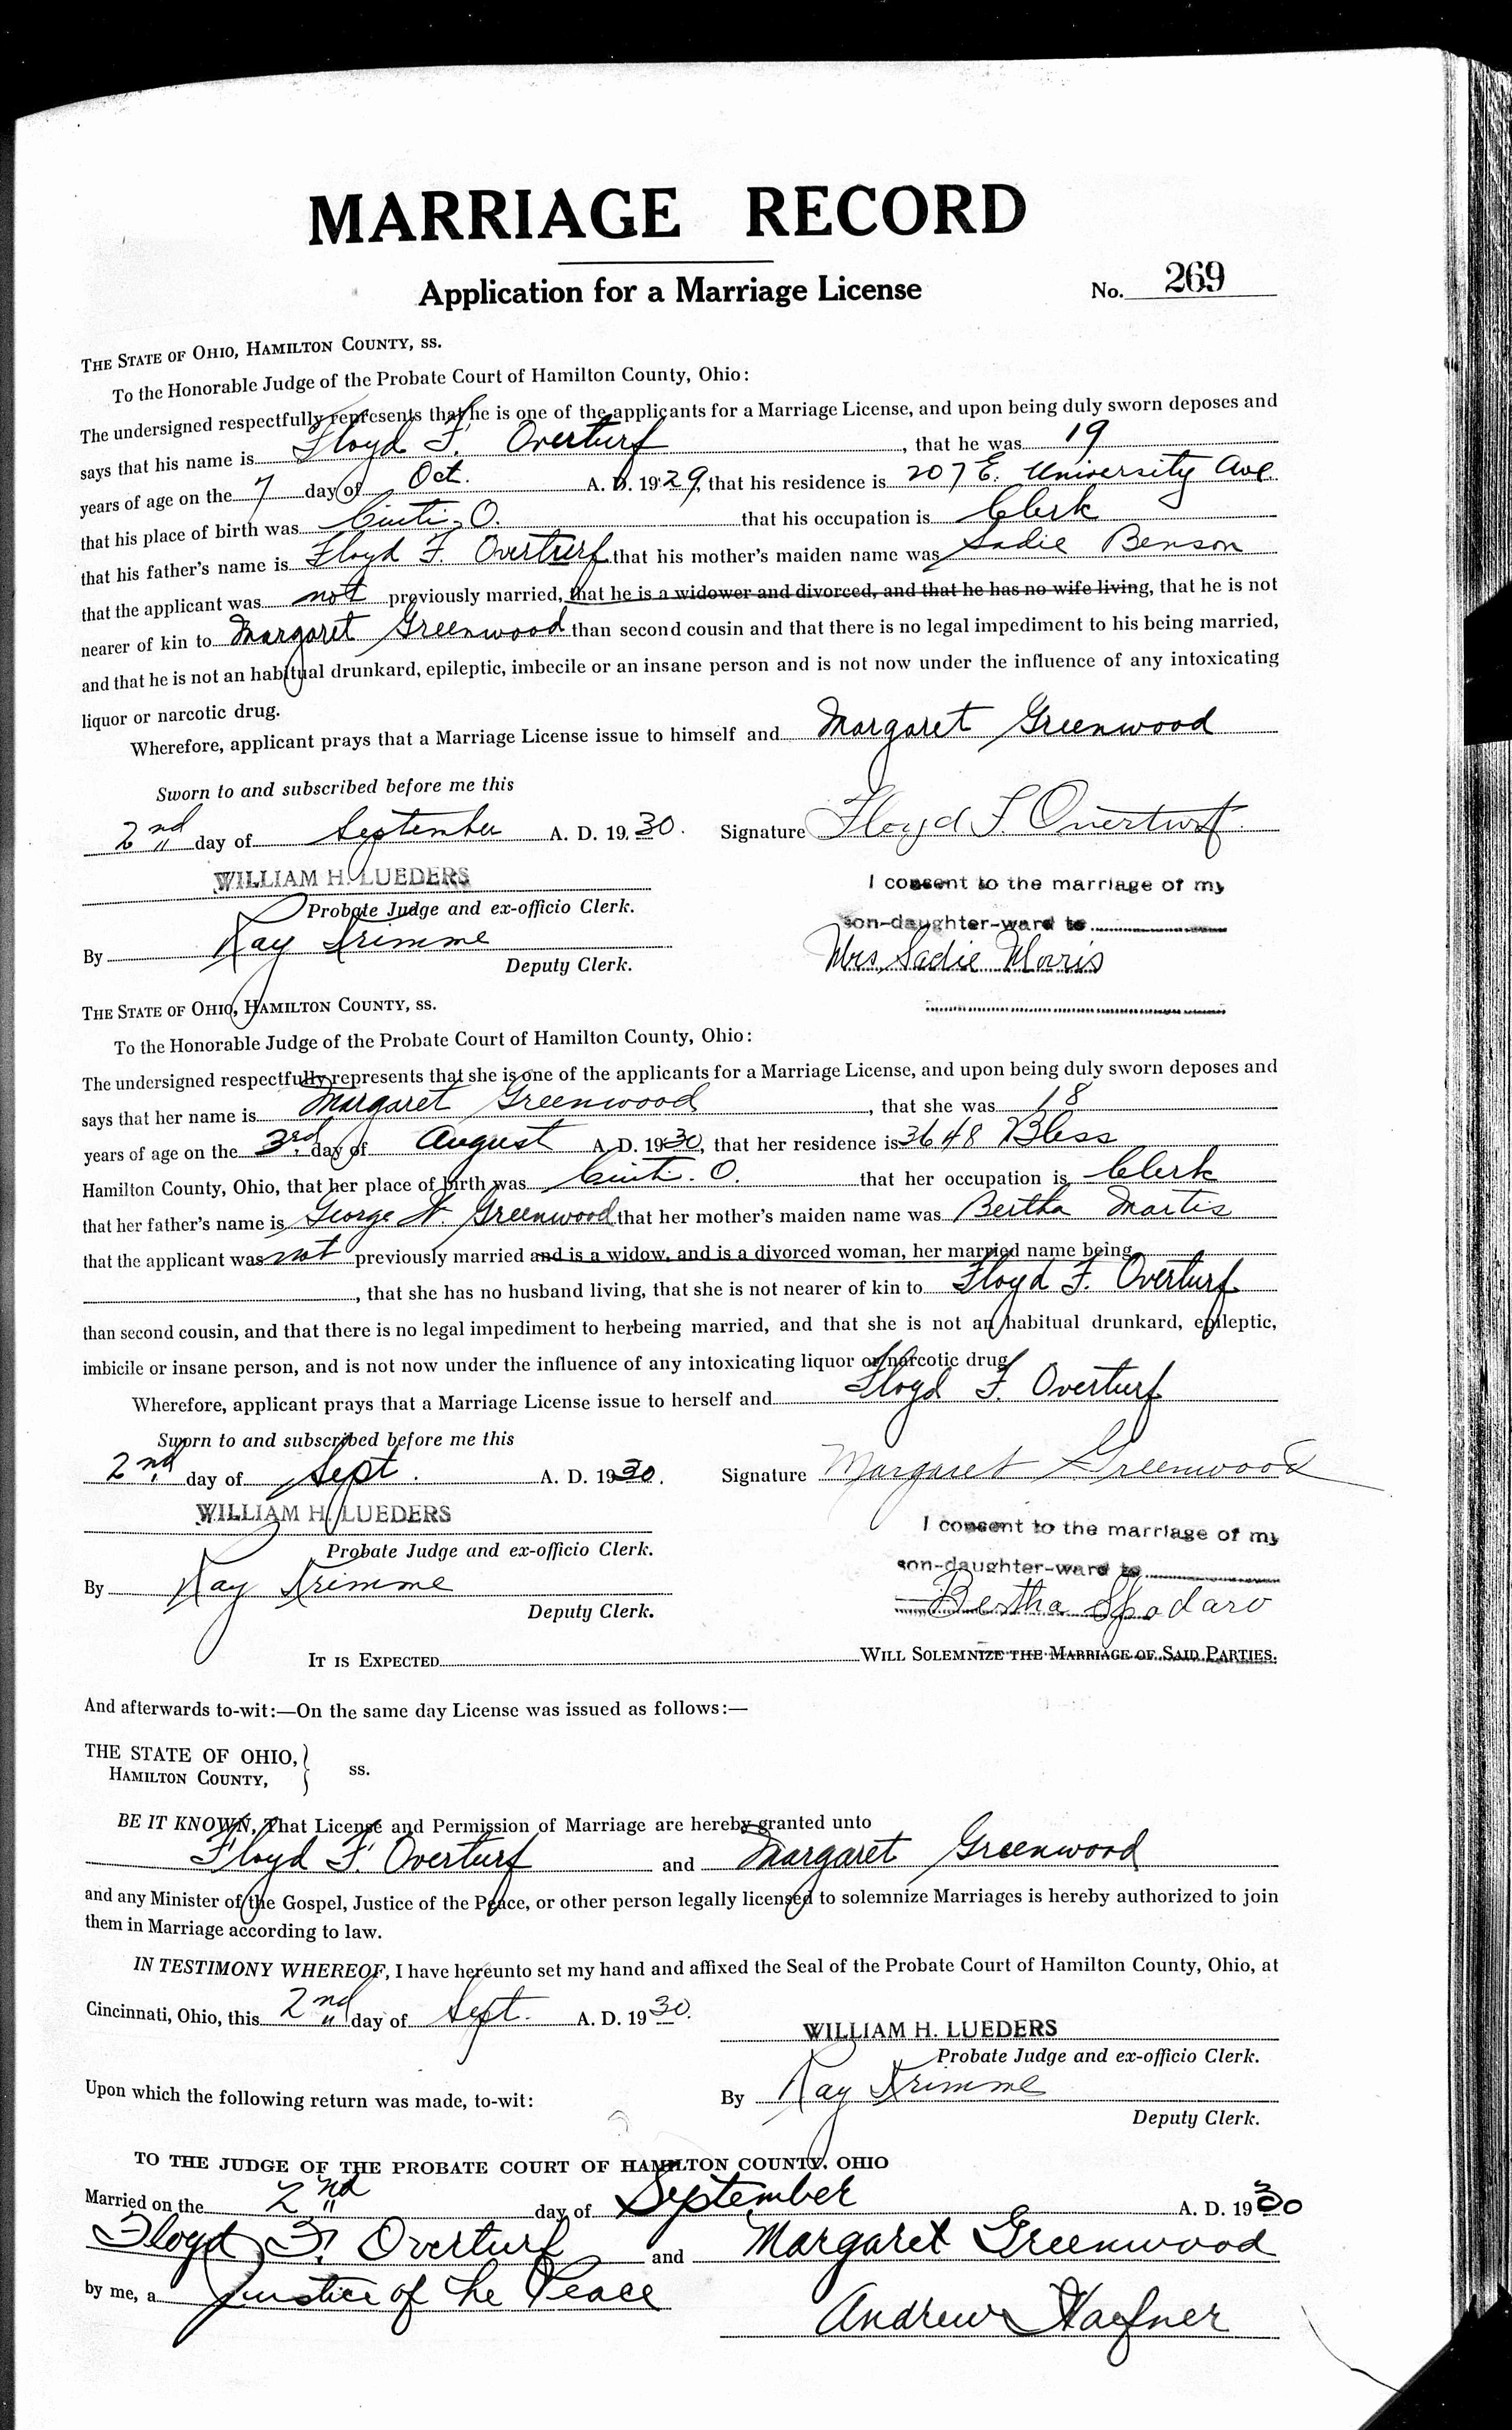 MARRIAGE RECORD
Application for a Marriage License No. 269
THE STATE OF OHIO, HAMILTON COUNTY, ss.
To the Honorable Judge of the Probate Court of Hamilton County, Ohio:
The undersigned respectfully represents that he is one of the applicants for a Marriage License, and upon being duly sworn deposes and
says that his name is Floyd F. Overturf, that he was 19
years of age on the 7 day of Oct. A. D. 1929, that his residence is 207 E. University Ave.
that his place of birth was Cinti. O. that his occupation is Clerk
that his father's name is Floyd F. Overturf that his mother's maiden name was Sadie Benson
that the applicant was not previously married, that he is a widower and divorced, and that he has no wife living, that he is not
nearer of kin to Margaret Greenwood than second cousin and that there is no legal impediment to his being married,
and that he is not an habitual drunkard, epileptic, imbecile or an insane person and is not now under the influence of any intoxicating
liquor or narcotic drug.
Wherefore, applicant prays that a Marriage License issue to himself and Margaret Greenwood
Sworn to and subscribed before me this
2nd day of September A. D. 19 30. Signature Floyd F. Overturf
WILLIAM H. LUEDERS
Probate Judge and ex-officio Clerk.
I consent to the marriage of my
son-daughter-ward to
By Ray Krimme
Deputy Clerk.
Mrs. Sadie Morris
THE STATE OF OHIO, HAMILTON COUNTY, ss.
To the Honorable Judge of the Probate Court of Hamilton County, Ohio:
The undersigned respectfully represents that she is one of the applicants for a Marriage License, and upon being duly sworn deposes and
says that her name is Margaret Greenwood, that she was 18
years of age on the 3rd. day of August A. D. 1930, that her residence is 3648 Bless
Hamilton County, Ohio, that her place of birth was Cinti. O. that her occupation is Clerk
that her father's name is George N. Greenwood that her mother's maiden name was Bertha Martis
that the applicant was not previously married and is a widow, and is a divorced woman, her married name being
, that she has no husband living, that she is not nearer of kin to Floyd F. Overturf
than second cousin, and that there is no legal impediment to herbeing married, and that she is not an habitual drunkard, epileptic,
imbicile or insane person, and is not now under the influence of any intoxicating liquor or narcotic drug
Wherefore, applicant prays that a Marriage License issue to herself and Floyd F. Overturf
Sworn to and subscribed before me this
2nd. day of Sept. A. D. 1930. Signature Margaret Greenwood
WILLIAM H. LUEDERS
Probate Judge and ex-officio Clerk.
I consent to the marriage of my
son-daughter-ward to
By Ray Krimme
Deputy Clerk.
Bertha Spodaro
IT IS EXPECTED WILL SOLEMNIZE THE MARRIAGE OF SAID PARTIES.
And afterwards to-wit:—On the same day License was issued as follows:—
THE STATE OF OHIO,
HAMILTON COUNTY, ss.
BE IT KNOWN, That License and Permission of Marriage are hereby granted unto
Floyd F. Overturf and Margaret Greenwood
and any Minister of the Gospel, Justice of the Peace, or other person legally licensed to solemnize Marriages is hereby authorized to join
them in Marriage according to law.
IN TESTIMONY WHEREOF, I have hereunto set my hand and affixed the Seal of the Probate Court of Hamilton County, Ohio, at
Cincinnati, Ohio, this 2nd day of Sept. A. D. 19 30.
WILLIAM H. LUEDERS
Probate Judge and ex-officio Clerk.
Upon which the following return was made, to-wit:
By Ray Krimme
Deputy Clerk.
TO THE JUDGE OF THE PROBATE COURT OF HAMILTON COUNTY, OHIO
Married on the 2nd day of September A. D. 1930
Floyd F. Overturf and Margaret Greenwood
by me, a Justice of the Peace
Andrew Haefner